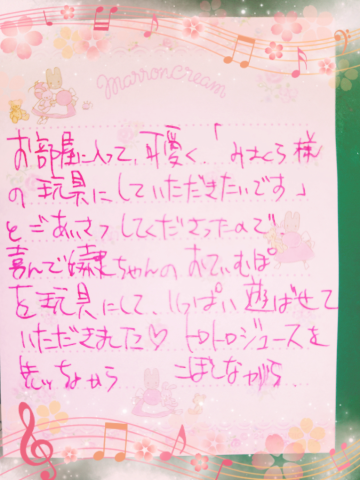 Marron Cream
お部屋に入って、可愛く…「みさくら様
の玩具にしていただきたいです」
とごあいさつしてくださったので
喜んで嬢ちゃんのおてぃむぽ
を玩具にして、いっぱい遊ばせて
いただきました♡ トロトロジュースを
先っちょから こぼしながら